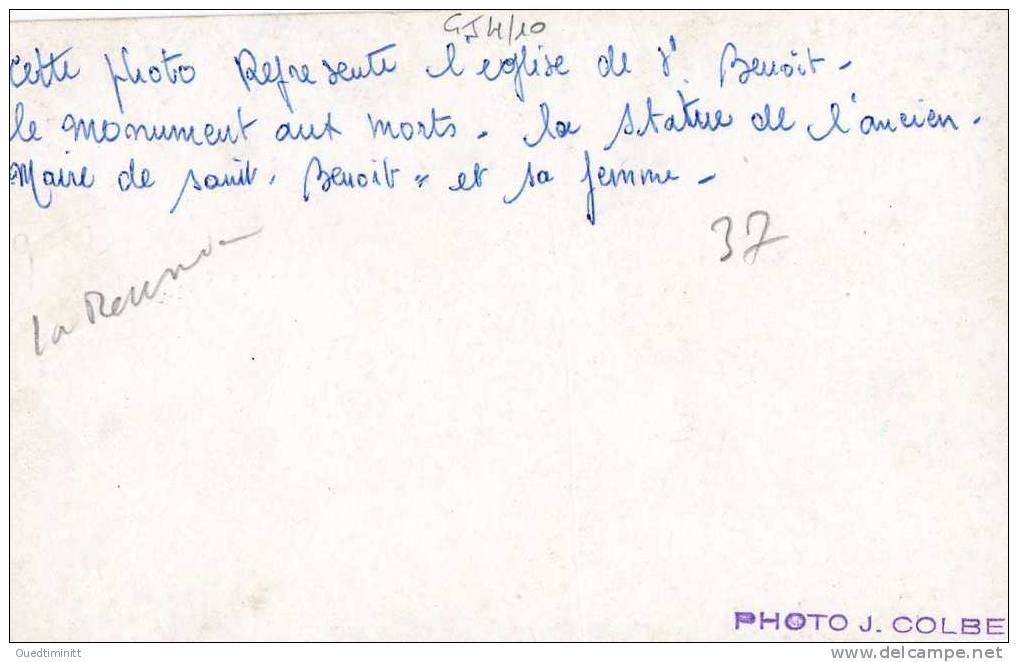 GJ4/10
Cette photo Represente l'eglise de St. Benoit -
le monument aux morts - la statue de l'ancien -
Maire de sanit. Benoit " et sa femme -
37
la Reunion
PHOTO J. COLBE
Ouedtiminitt
www.delcampe.net